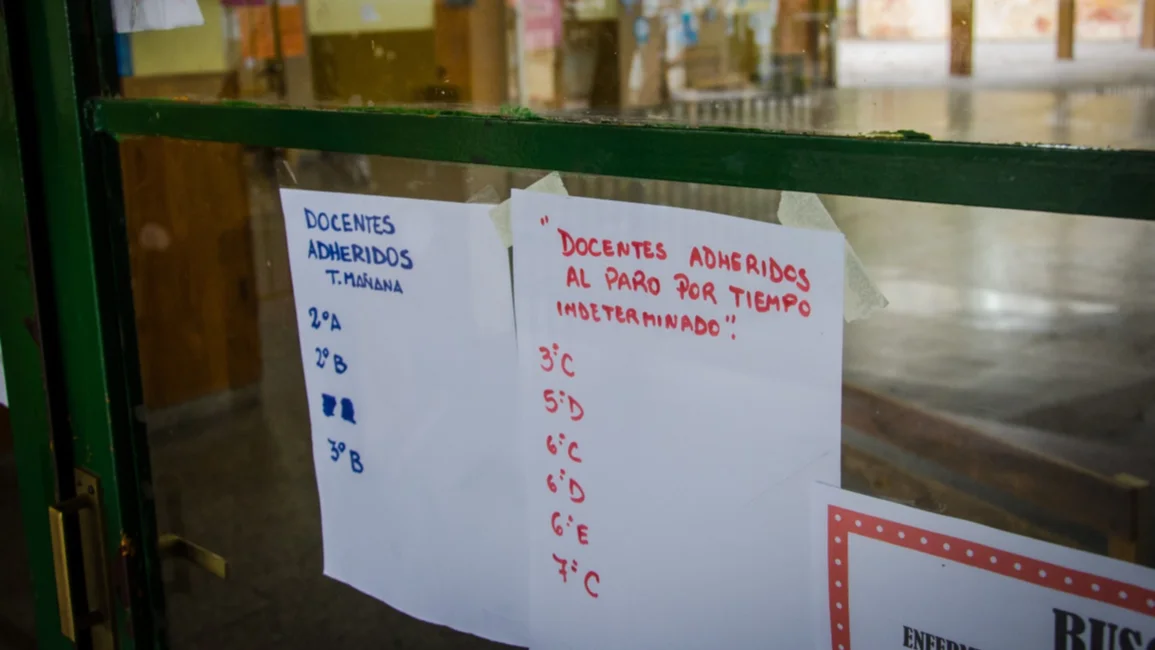 DOCENTES
ADHERIDOS
T. MAÑANA
2ºA
2ºB
3ºB
"DOCENTES ADHERIDOS
AL PARO POR TIEMPO
INDETERMINADO".
3ºC
5ºD
6ºC
6ºD
6ºE
7ºC